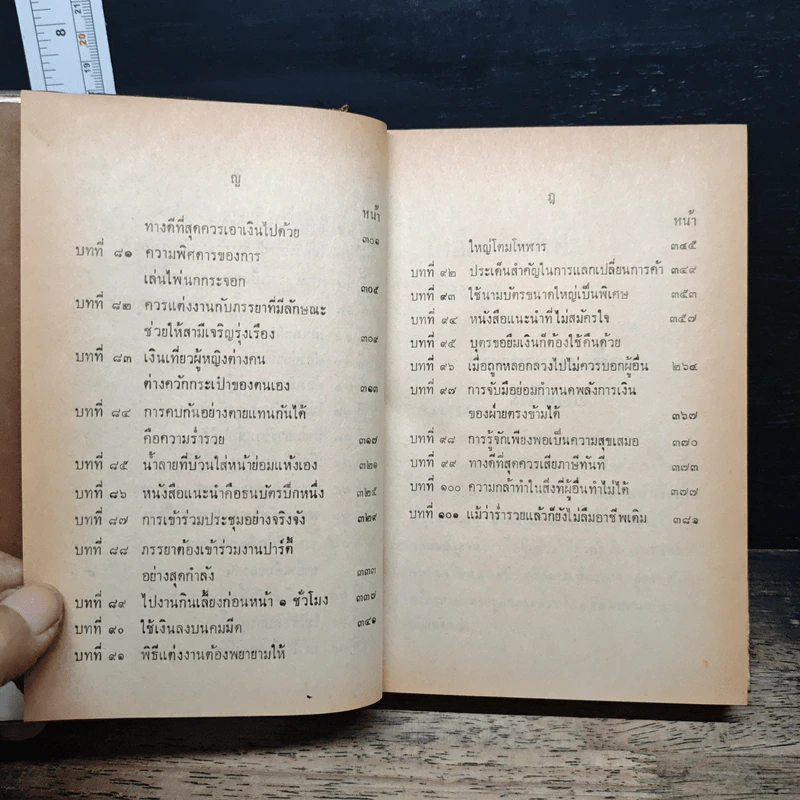 8
21
20
19
ญ
หน้า
ทางดีที่สุดควรเอาเงินไปด้วย ๓๐๑
บทที่ ๘๑ ความพิศดารของการ
เล่นไพ่นกกระจอก ๓๐๕
บทที่ ๘๒ ควรแต่งงานกับภรรยาที่มีลักษณะ
ช่วยให้สามีเจริญรุ่งเรือง ๓๐๙
บทที่ ๘๓ เงินเที่ยวผู้หญิงต่างคน
ต่างควักกระเป๋าของตนเอง ๓๑๓
บทที่ ๘๔ การคบกันอย่างตายแทนกันได้
คือความร่ำรวย ๓๑๗
บทที่ ๘๕ น้ำลายที่บ้วนใส่หน้าย่อมแห้งเอง ๓๒๑
บทที่ ๘๖ หนังสือแนะนำคือธนบัตรปึกหนึ่ง ๓๒๕
บทที่ ๘๗ การเข้าร่วมประชุมอย่างจริงจัง ๓๒๙
บทที่ ๘๘ ภรรยาต้องเข้าร่วมงานปาร์ตี้
อย่างสุดกำลัง ๓๓๓
บทที่ ๘๙ ไปงานกินเลี้ยงก่อนหน้า ๑ ชั่วโมง ๓๓๗
บทที่ ๙๐ ใช้เงินลงบนคมมีด ๓๔๑
บทที่ ๙๑ พิธีแต่งงานต้องพยายามให้
ฎ
หน้า
ใหญ่โตมโหฬาร ๓๔๕
บทที่ ๙๒ ประเด็นสำคัญในการแลกเปลี่ยนการค้า ๓๔๙
บทที่ ๙๓ ใช้นามบัตรขนาดใหญ่เป็นพิเศษ ๓๕๓
บทที่ ๙๔ หนังสือแนะนำที่ไม่สมัครใจ ๓๕๗
บทที่ ๙๕ บุตรขอยืมเงินก็ต้องใช้คืนด้วย
บทที่ ๙๖ เมื่อถูกหลอกลวงไปไม่ควรบอกผู้อื่น ๒๖๔
บทที่ ๙๗ การจับมือย่อมกำหนดพลังการเงิน
ของฝ่ายตรงข้ามได้ ๓๖๗
บทที่ ๙๘ การรู้จักเพียงพอเป็นความสุขเสมอ ๓๗๐
บทที่ ๙๙ ทางดีที่สุดควรเสียภาษีทันที ๓๗๓
บทที่ ๑๐๐ ความกล้าทำในสิ่งที่ผู้อื่นทำไม่ได้ ๓๗๗
บทที่ ๑๐๑ แม้ว่าร่ำรวยแล้วก็ยังไม่ลืมอาชีพเดิม ๓๘๑